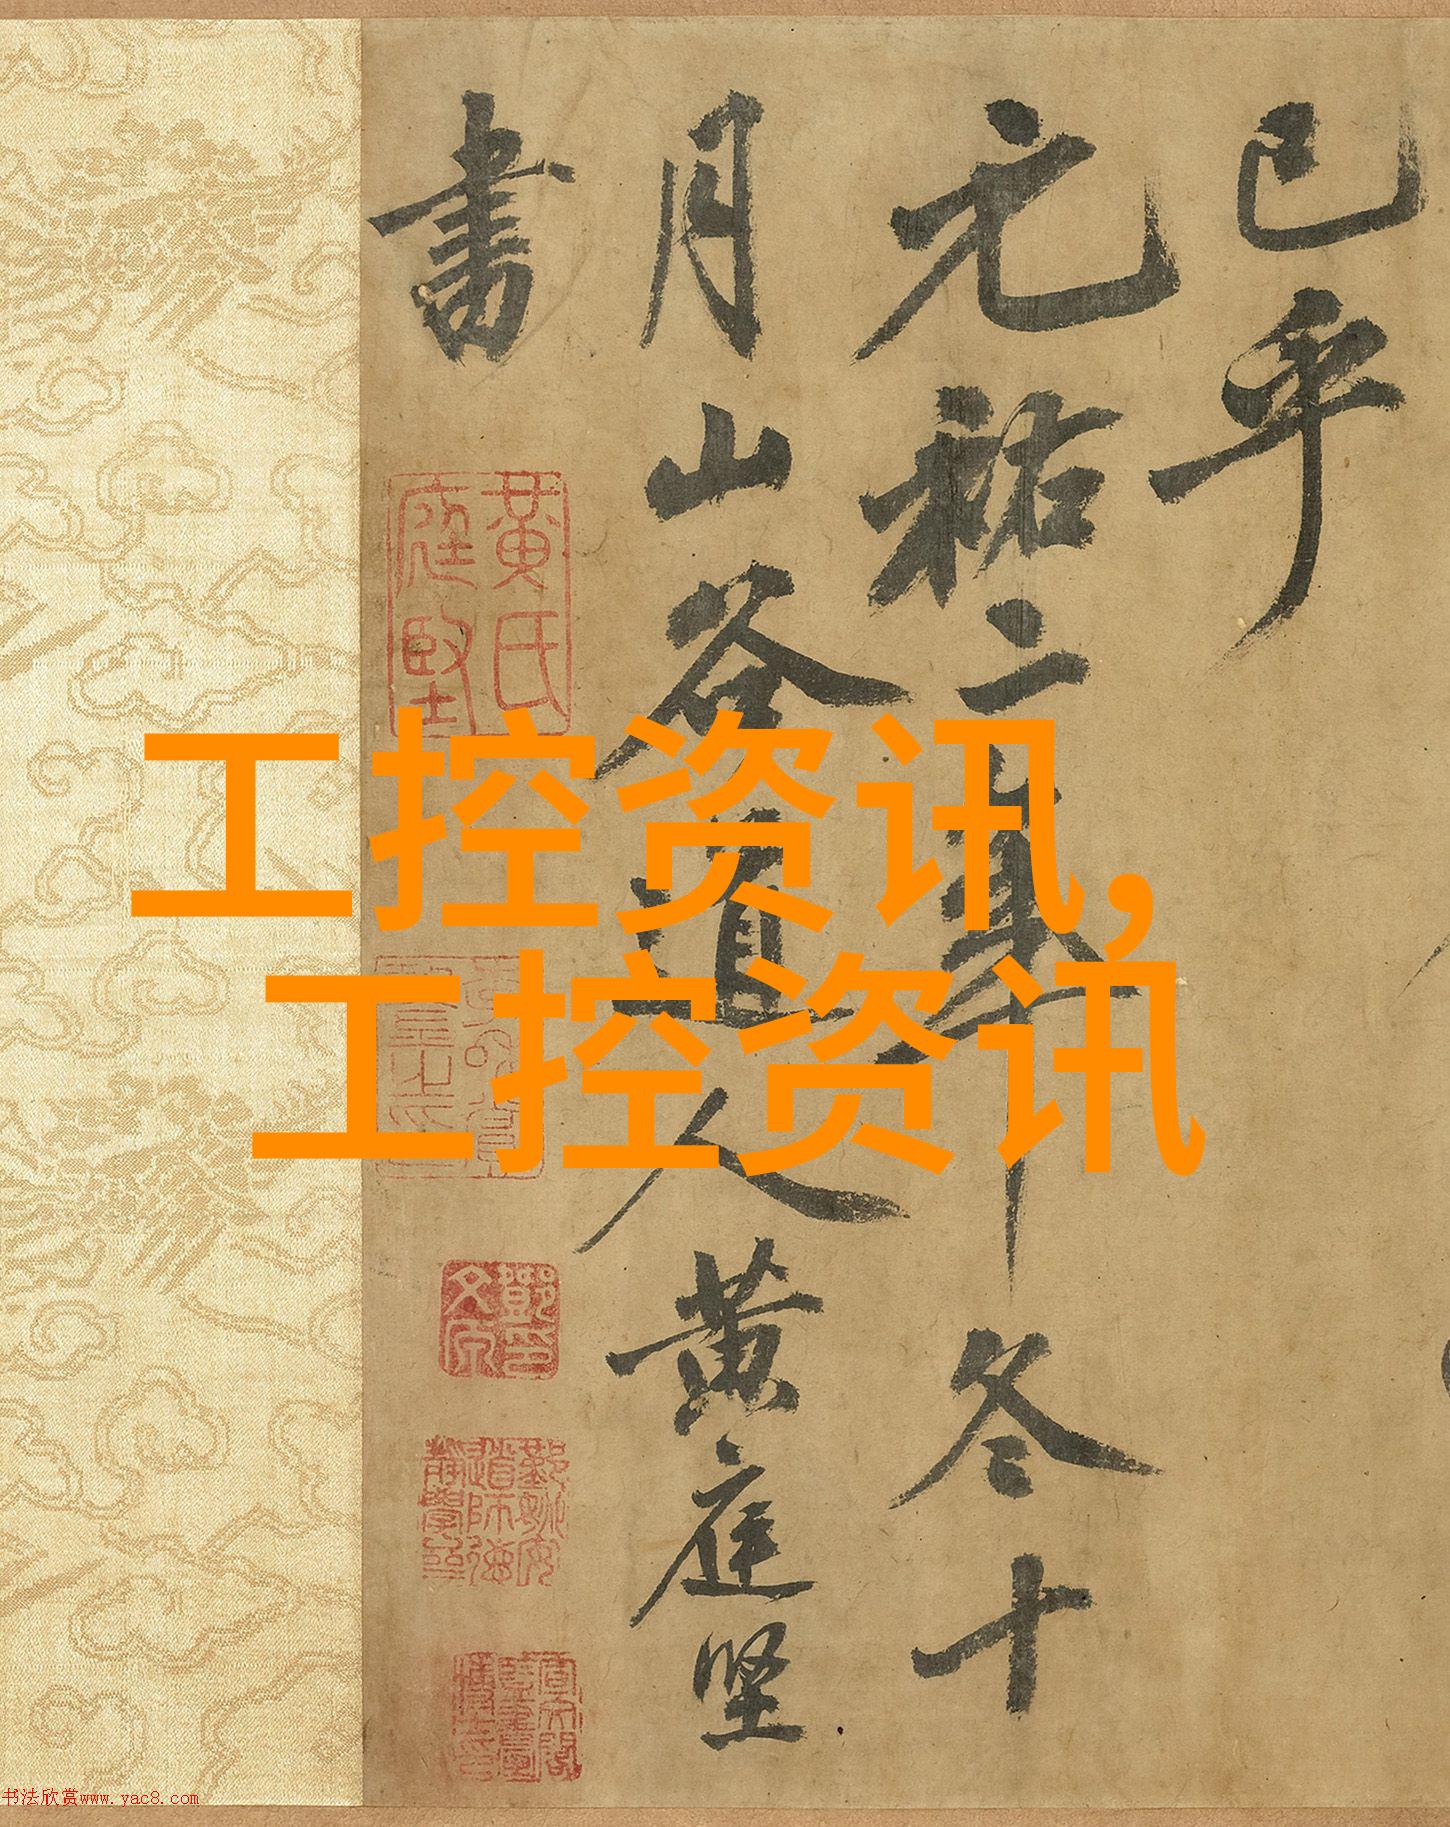 已乎
元祐二年冬十
月山谷道人黄庭堅
書
黄氏庭堅
工控资讯,
工控资讯
书法欣赏www.yac8.com